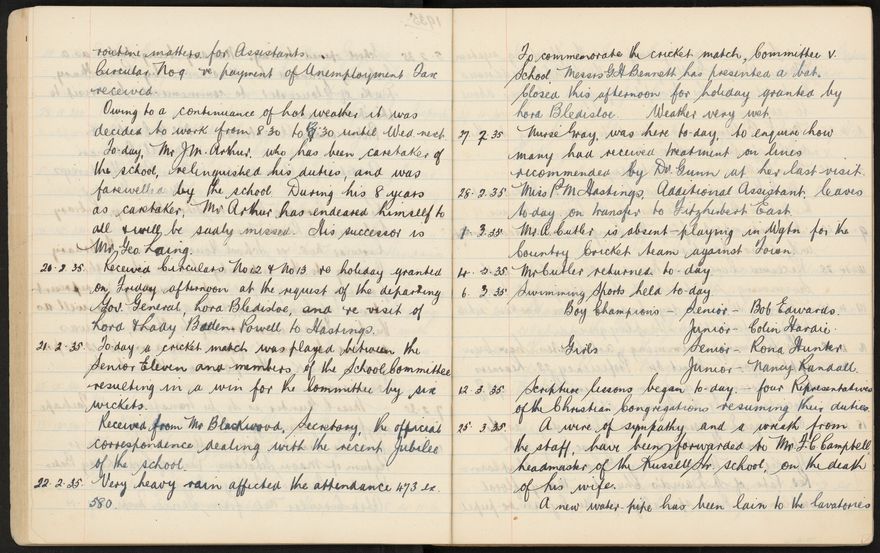 1935.
routine matters for Assistants.
Circular No 9 re payment of Unemployment Tax
received.
Owing to a continuance of hot weather it was
decided to work from 8.30 to 30 until Wed next.
To-day, Mr J.M. Arthur, who has been caretaker of
the school, relinquished his duties, and was
farewelled by the school. During his 8 years
as caretaker, Mr Arthur has endeared himself to
all & will be sadly missed. His successor is
Mr Geo. Laing.
20.2.35. Received Circulars No 12 & No 13 re holiday granted
on Friday afternoon at the request of the departing
Gov. General, Lord Bledisloe, and re visit of
Lord & Lady Baden Powell to Hastings.
21.2.35 To-day a cricket match was played between the
Senior Eleven and members of the School Committee
resulting in a win for the Committee by six
wickets.
Received from Mr Blackwood, Secretary, the official
correspondence dealing with the recent Jubilee
of the school.
22.2.35. Very heavy rain affected the attendance 473 ex.
580.
To commemorate the cricket match, Committee v.
School Messrs G.H Bennett has presented a bat.
Closed this afternoon for holiday granted by
Lord Bledisloe. Weather very wet.
27.2.35 Nurse Gray, was here to-day, to enquire how
many had received treatment on lines
recommended by Dr. Gunn at her last visit.
28.2.35. Miss P. M. Hastings, Additional Assistant, leaves
to-day on transfer to Fitzherbert East.
1.3.35. Mr A. Cutler is absent playing in Wgtn for the
Country Cricket team against Town.
4.3.35 Mr Cutler returned to-day
6.3.35 Swimming Sports held to-day
Boy Champions - Senior - Bob Edwards.
Junior - Colin Hardie.
Girls Senior - Rona Hunter.
Junior - Nancy Randall.
12.3.35 Scripture lessons began to-day - four Representatives
of the Christian Congregations resuming their duties.
25.3.35. A wire of sympathy and a wreath from
the staff, have been forwarded to Mr. F. C. Campbell,
headmaster of the Russell St. school, on the death
of his wife.
A new water-pipe has been lain to the lavatories